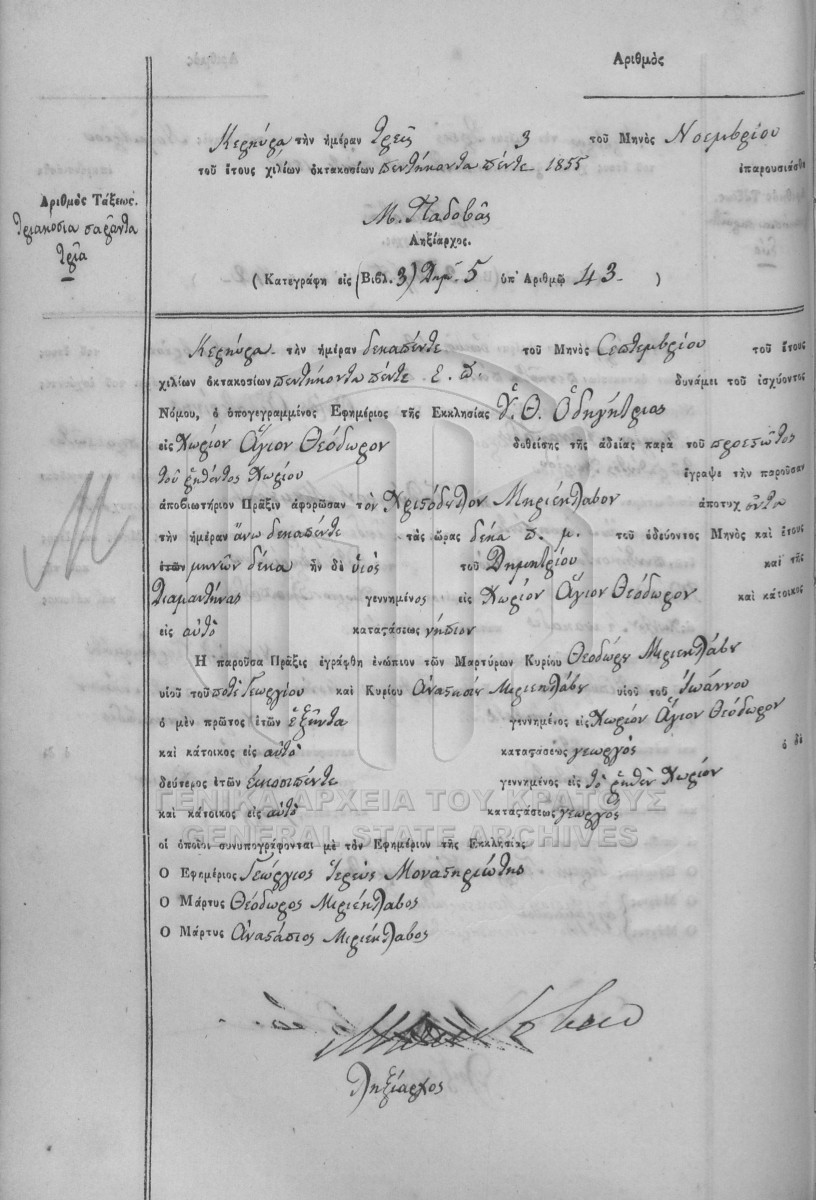 Ἀριθμὸς
Κερκύρα τὴν ἡμέραν τρεῖς 3 τοῦ Μηνὸς Νοεμβρίου
τοῦ ἔτους χιλίων ὀκτακοσίων πεντήκοντα πέντε 1855 ἐπαρουσιάσθη
Ἀριθμὸς Τάξεως.
τριακόσια σαράντα
τρία
Μ. Παδοβᾶς
Ληξίαρχος.
( Κατεγράφη εἰς (Βιβλ. 3) Δημ. 5 ὑπ' Ἀριθμῷ 43 - )
Κερκύρα τὴν ἡμέραν δεκαπέντε τοῦ Μηνὸς Σεπτεμβρίου τοῦ ἔτους
χιλίων ὀκτακοσίων πεντήκοντα πέντε ε. π. δυνάμει τοῦ ἰσχύοντος
Νόμου, ὁ ὑπογεγραμμένος Ἐφημέριος τῆς Ἐκκλησίας Ὑ. Θ. Ὁδηγήτριας
εἰς Χωρίον Ἅγιον Θεόδωρον δοθείσης τῆς ἀδείας παρὰ τοῦ προεστῶτος
τοῦ ῥηθέντος Χωρίου ἔγραψε τὴν παροῦσαν
ἀποβιωτήριον Πρᾶξιν ἀφορῶσαν τὸν Χριστόδουλον Μηριέκλαβον ἀποτυχόντα
τὴν ἡμέραν ἄνω δεκαπέντε τὰς ὥρας δέκα π. μ. τοῦ ὁδεύοντος Μηνὸς καὶ ἔτους
ἐτῶν μηνῶν δέκα ἦν δὲ υἱὸς τοῦ Δημητρίου καὶ τῆς
Διαμαντήνας γεννημένος εἰς Χωρίον Ἅγιον Θεόδωρον καὶ κάτοικος
εἰς αὐτὸ καταστάσεως νήπιον
Ἡ παροῦσα Πρᾶξις ἐγράφθη ἐνώπιον τῶν Μαρτύρων Κυρίου Θεοδώρου Μιριέκλαβου
υἱοῦ τοῦ ποτὲ Γεωργίου καὶ Κυρίου Ἀναστασίου Μιριέκλαβου υἱοῦ τοῦ Ἰωάννου
ὁ μὲν πρῶτος ἐτῶν ἑξῆντα γεννημένος εἰς Χωρίον Ἅγιον Θεόδωρον
καὶ κάτοικος εἰς αὐτὸ καταστάσεως γεωργὸς ὁ δὲ
δεύτερος ἐτῶν εἰκοσιπέντε γεννημένος εἰς τὸ ῥηθὲν Χωρίον
καὶ κάτοικος εἰς αὐτὸ καταστάσεως γεωργὸς
οἱ ὁποῖοι συνυπογράφονται μὲ τὸν Ἐφημέριον τῆς Ἐκκλησίας
Ὁ Ἐφημέριος Γεώργιος Ἱερεὺς Μοναστηριώτης
Ὁ Μάρτυς Θεόδωρος Μιριέκλαβος
Ὁ Μάρτυς Ἀναστάσιος Μιριέκλαβος
Ληξίαρχος
Μ
ΓΕΝΙΚΑ ΑΡΧΕΙΑ ΤΟΥ ΚΡΑΤΟΥΣ
GENERAL STATE ARCHIVES